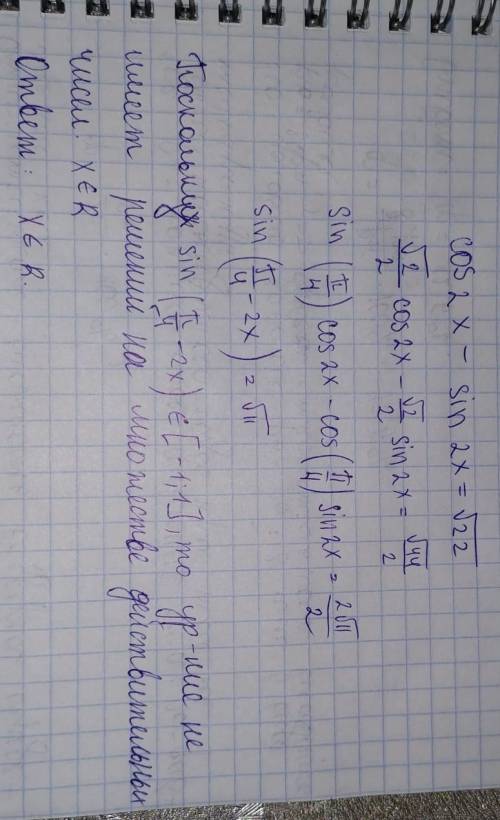 cos 2x - sin 2x = √22
√2/2 cos 2x - √2/2 sin 2x = √44/2
sin (π/4) cos 2x - cos (π/4) sin 2x = 2√11/2
sin (π/4 - 2x) = √11
Поскольку sin (π/4 - 2x) ∈ [-1;1], то ур-ние не
имеет решений на множестве действительных
чисел: x ∈ R
Ответ: x ∈ R.